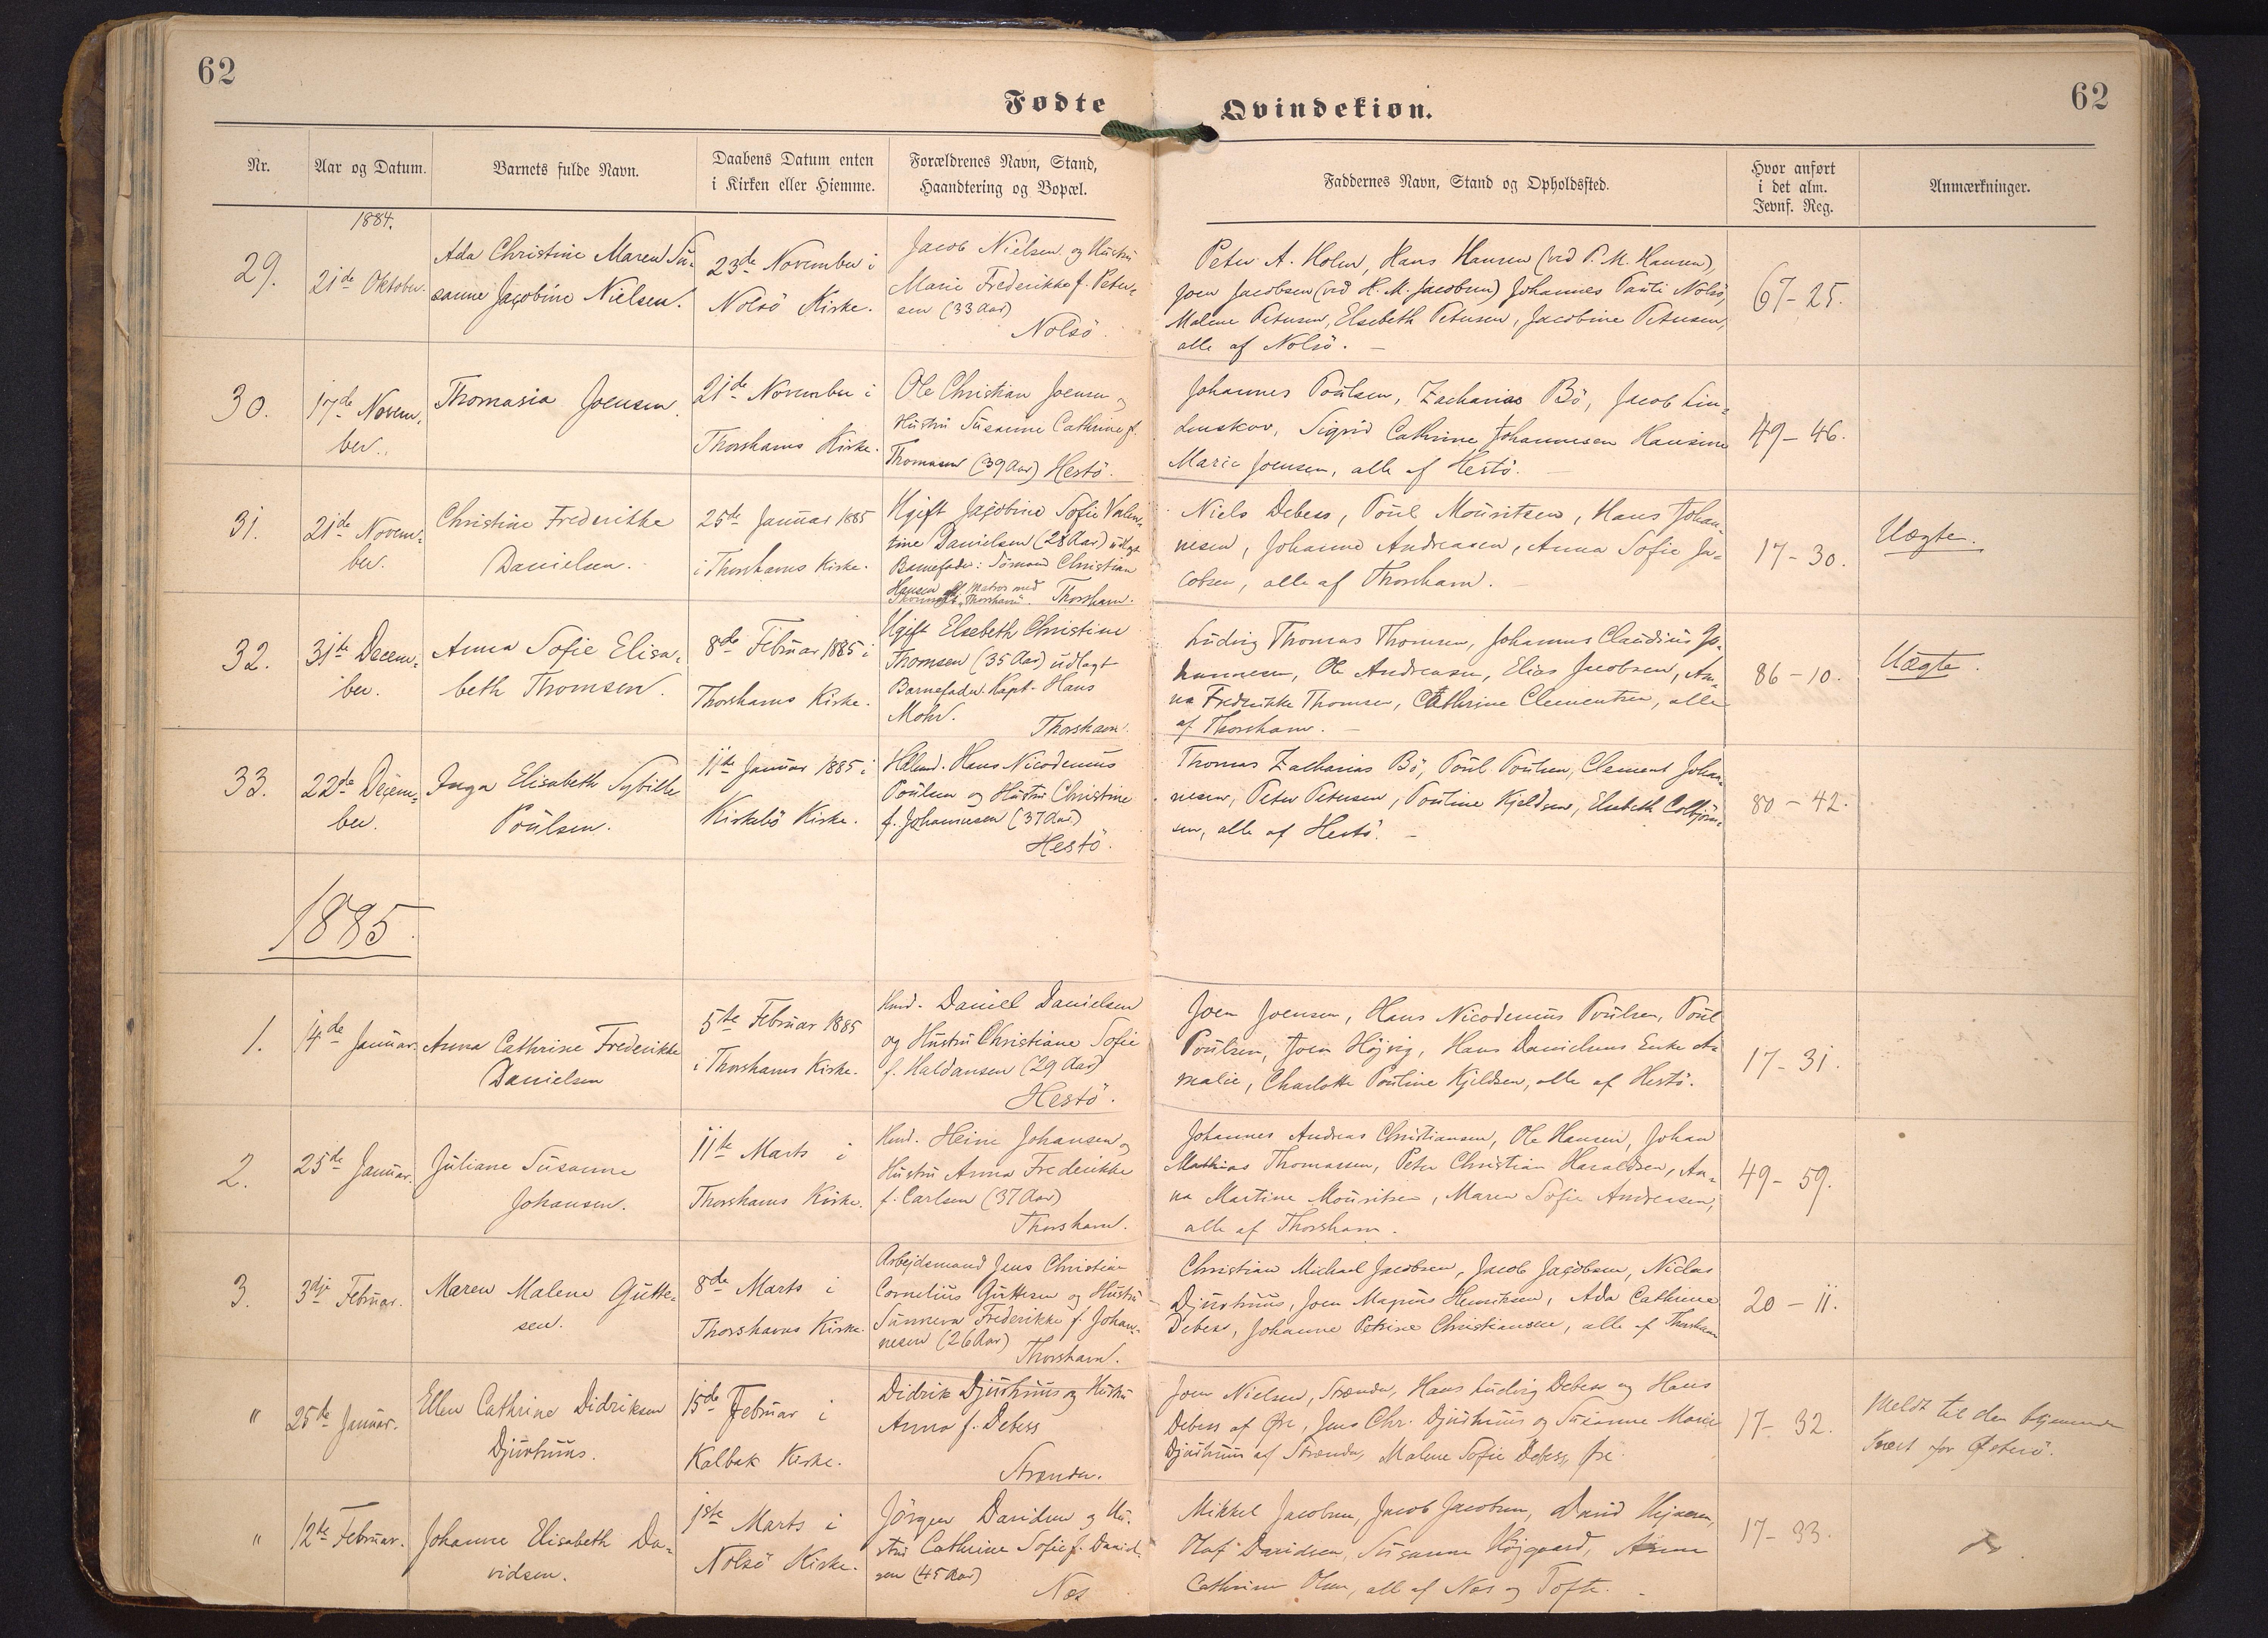 62
62
Fødte
Qvindekiøn.
Nr.
Aar og Datum.
Barnets fulde Navn.
Daabens Datum enten
i Kirken eller Hiemme.
Forældrenes Navn, Stand,
Haandtering og Bopæl.
Faddernes Navn, Stand og Opholdssted.
Hvor anført
i det alm.
Jevnf. Reg.
Anmærkninger.
1884.
29.
21de Oktober.
Ada Christine Maren Su-
sanne Jacobine Nielsen.
23de November i
Nolsö Kirke.
Jacob Nielsen og Hustru
Marie Frederikke f. Peter-
sen (33 Aar)
Nolsö
Peter A. Holm, Hans Hansen (ved P. M. Hansen),
Joen Jacobsen (ved H. M. Jacobsen) Johannes Pauli Nolsö,
Malene Petersen, Elsebeth Petersen, Jacobine Petersen,
alle af Nolsö. -
67-25.
30.
17de Novem-
ber.
Thomasia Joensen.
21de November i
Thorshavns Kirke.
Ole Christian Joensen og
Hustru Susanne Cathrine f.
Thomasen (39 Aar) Hestö.
Johannes Poulsen, Zacharias Bö, Jacob Lin-
denskov, Sigrid Cathrine Johannesen Hansine
Marie Joensen, alle af Hestö. -
49-46.
31.
21de Novem-
ber.
Christine Frederikke
Danielsen.
25de Januar 1885
i Thorshavns Kirke.
Ugift Jacobine Sofie Valen-
tine Danielsen (28 Aar) udlagt
Barnefader: Sömand Christian
Hansen Matros med
Thorshavn.
Niels Debess, Poul Mouritsen, Hans Johan-
nesen, Johanne Andreasen, Anna Sofie Ja-
cobsen, alle af Thorshavn. -
17-30.
Uægte.
32.
31te Decem-
ber.
Anna Sofie Elisa-
beth Thomsen.
8de Februar 1885 i
Thorshavns Kirke.
Ugift Elsebeth Christine
Thomsen (35 Aar) udlagt
Barnefader Kapt. Hans
Mohr.
Thorshavn.
Ludvig Thomas Thomsen, Johannes Claudius Jo-
hannesen, Ole Andreasen, Elias Jacobsen, An-
na Frederikke Thomsen, Cathrine Clementsen, alle
af Thorshavn. -
86-10.
Uægte.
33.
22de Decem-
ber.
Inga Elisabeth Sybille
Poulsen.
11te Januar 1885 i
Kirkebö Kirke.
Hans Nicodemus
Poulsen og Hustru Christine
f. Johannesen (37 Aar)
Hestö.
Thomas Zacharias Bö, Poul Poulsen, Clement Johan-
nesen, Peter Petersen, Pouline Kjeldsen, Elsebeth Colbjörn-
sen, alle af Hestö. -
80-42.
1885.
1.
14de Januar.
Anna Cathrine Frederikke
Danielsen
5te Februar 1885
i Thorshavns Kirke.
Hmd. Daniel Danielsen
og Hustru Christiane Sofie
f. Haldansen (29 Aar)
Hestö.
Joen Joensen, Hans Nicodemus Poulsen, Poul
Poulsen, Joen Höjvig, Hans Danielsens Enke A-
malie, Charlotte Pouline Kjeldsen, alle af Hestö.
17-31.
2.
25de Januar.
Juliane Susanne
Johansen.
11te Marts i
Thorshavns Kirke.
Hmd. Heine Johansen og
Hustru Anna Frederikke
f. Carlsen (37 Aar)
Thorshavn.
Johannes Andreas Christiansen, Ole Hansen, Johan
Mathias Thomassen, Peter Christian Haraldsen, An-
na Martine Mouritsen, Maren Sofie Andreasen,
alle af Thorshavn.
49-59.
3.
3die Februar.
Maren Malene Gutte-
sen.
8de Marts i
Thorshavns Kirke.
Arbejdsmand Jens Christian
Cornelius Guttesen og Hustru
Sunneva Frederikke f. Johan-
nesen (26 Aar)
Thorshavn.
Christian Michael Jacobsen, Jacob Jacobsen, Niclas
Djurhuus, Joen Magnus Henriksen, Ada Cathrine
Debess, Johanne Petrine Christiansen, alle af Thorshavn
20-11.
"
25de Januar.
Ellen Cathrine Didriksen
Djurhuus.
15de Februar i
Kalbak Kirke.
Didrik Djurhuus og Hustru
Anna f. Debess
Strænder.
Joen Nielsen, Strænder, Hans Ludvig Debess og Hans
Debess af Øre, Jens Chr. Djurhuus og Susanne Marie
Djurhuus af Strænder, Malene Sofie Debess, Øre.
17-32.
Meldt til den
Præst for Österö.
"
12te Februar.
Johanne Elisabeth Da-
vidsen.
1ste Marts i
Nolsö Kirke.
Jörgen Davidsen og Hu-
stru Cathrine Sofie f. David-
sen (45 Aar)
Næs
Mikkel Jacobsen, Jacob Jacobsen, David
Olaf Davidsen, Susanne Höjgaard, Anna
Cathrine Olsen, alle af Næs og Tofte. -
17-33.